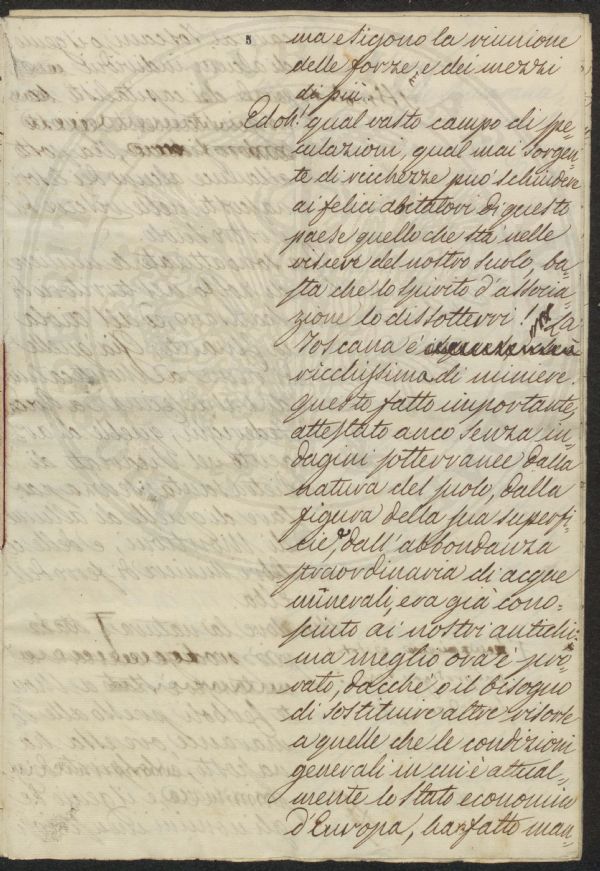 ma esigono la riunione
delle forze, e dei mezzi
di più.
Ed oh! qual vasto campo di spe-
culazioni, qual mai sorgen-
te di ricchezze può schiudere
ai felici abitatori di questo
paese quello che stà nelle
viscere del nostro suolo, ba-
sta che lo spirito d'associa-
zione lo dissotterri! La
Toscana è
ricchissima di miniere.
questo fatto importante,
attestato anco senza in-
dagini sotterranee dalla
natura del suolo, dalla
figura della sua superfi-
cie, dall'abbondanza
straordinaria di acque
minerali, era già cono-
sciuto ai nostri antichi:
ma meglio ora è pro-
vato, dacchè o il bisogno
di sostituire altre risorse
a quelle che le condizioni
generali in cui è attual-
mente lo stato economico
d'Europa, han fatto man-